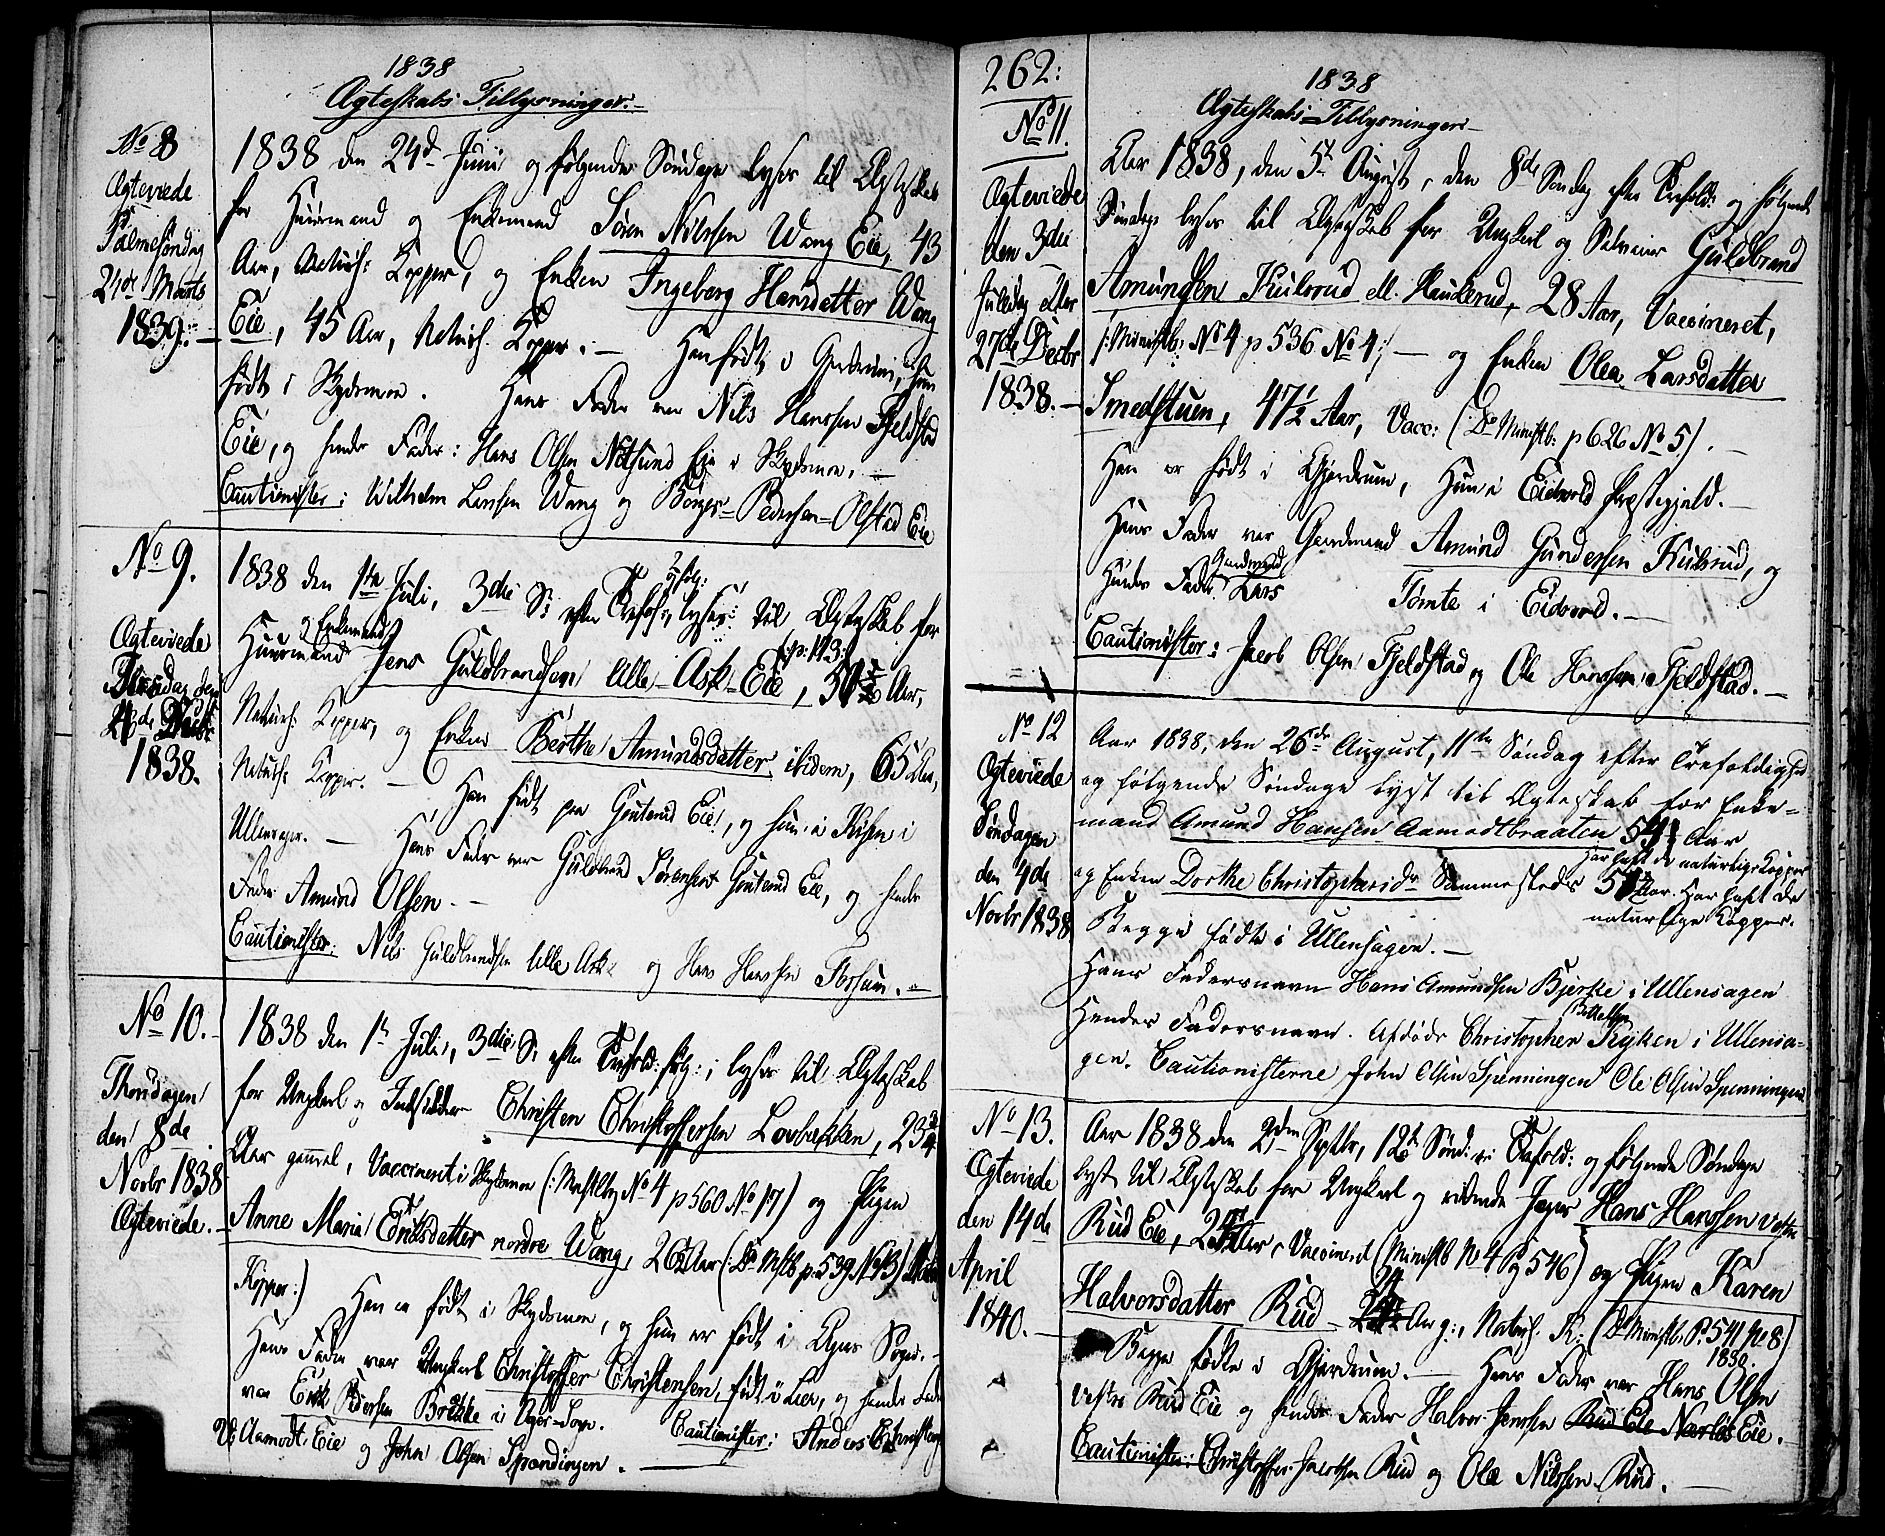 1838
Ægteskabs Tillysninger.
No 8
Ægteviede
Palmesøndag
24de Marts
1839.
1838 den 24d Juni og følgende Søndage lyser til Ægteskab
for Huusmand og Enkemand Søren Nilssen Wang Eie, 43
Aar, naturl: Kopper, og Enken Ingeborg Hansdatter Wang
Eie, 45 Aar, Naturl. Kopper. — Han født i Gjerdrum, hun
født i Skydsmoe. Hans Fader var Nils Hanssen Fjeldstad
Eie, og hendes Fader: Hans Olsen Eie i Skydsmoe. —
Cautionister: Wilhelm Larssen Wang og Borger Pedersen Ølstad Eie
No 9.
Ægteviede
den
1838.
1838 den 1ste Juli, 3die S: efter Trefold: og følg: lyser til Ægteskab for
Huusmand og Enkemand Jens Guldbrandsen Lille-Ask-Eie, Aar,
Naturl: Kopper, og Enken Berthe Amundsdatter ibidem, 65 Aar,
Naturl: Kopper. — Han født paa Eie, og hun i i
Ullensager. — Hans Fader var Guldbrand Sørensen Eie, og hendes
Fader Amund Olsen. —
Cautionister: Nils Guldbrandsen Lille Ask og Hans Hanssen
No 10.
Thorsdagen
den 8de
Novbr 1838
Ægteviede.
1838 den 1st Juli, 3die S: efter Trefold: følg:; lyser til Ægteskab
for Ungkarl og Christen Christoffersen Lovbækken, 23¾
Aar gammel, Vaccineret i Skydsmoe (: No 4 p 560 No 17) og Pigen
Anne Maria Eriksdatter nordre Wang, 26 Aar (: p: 539
Kopper:) Han er født i Skydsmoe, og hun er født i Sogn. —
Hans Fader var Ungkarl Christoffer Christensen, født i Lier, og hendes Fader
var Erik Pedersen i Sogn. Cautionister: Anders Christens:
Aamodt Eie og John Olsen Spondingen. —
262:
1838
Ægteskabs-Tillysninger
No 11.
Ægteviede
den 3die
Juledag eller
27de Decbr
1838. —
Aar 1838, den 5t August, den 8de Søndag efter Trefold: og følgende
Søndage lyses til Ægteskab for Ungkarl og Selveier Guldbrand
Amundsen Kulsrud ell. Haukerud, 28 Aar, Vaccineret,
/: Ministb: No 4 p 536 No 4 :/ — og Enken Olea Larsdatter
Smedstuen, 47½ Aar, Vacc: (Do Ministb: p 626 No 5). —
Han er født i Gjerdrum, Hun i Eidsvold Præstegjeld. —
Hans Fader var Gaardmand Amund Gundersen Kulsrud, og
Hendes Fader Gaardmand Lars Tømte i Eidsvold. —
Cautionister: Jacob Olsen Fjeldstad og Ole Hanssen Fjeldstad. —
No 12
Ægteviede
Søndagen
den 4de
Novbr 1838
Aar 1838, den 26de August, 11te Søndag efter Trefoldighed
og følgende Søndage lyst til Ægteskab for Enke-
mand Amund Hansen Aamodtbraaten 54 Aar
Har haft de naturlige Kopper
og Enken Dorthe Christophersdr Sammesteds Aar. Har haft de
naturlige Kopper.
Begge fødte i Ullensagen. —
Hans Fadersnavn Hans Amundsen Bjerke i Ullensagen
Hendes Fadersnavn. Afdøde Christopher Ryken i Ullensa-
gen. Cautionisterne John Olsen Spenningen Ole Olsen Spenningen
No 13.
Ægteviede
den 14de
April
1840. —
Aar 1838 den 2den Septbr, 12te Sønd: e: Trefold: og følgende Søndage
lyst til Ægteskab for Ungkarl og ridende Jæger Hans Hanssen
Rud Eie, Aar, Vaccineret (Ministb No 4 Pg 546) og Pigen Karen
Halvorsdatter Rud 24 Aar g:, Naturl. K: (Do Ministb P: 541 No 8)
1830.
Begge fødte i Gjerdrum. — Hans Fader var Hans Olsen
Rud Eie og hendes Fader Halvor Jenssen Rud Eie Eie. —
Cautionister: Christoffer Rud og Ole Nilssen Rud. —